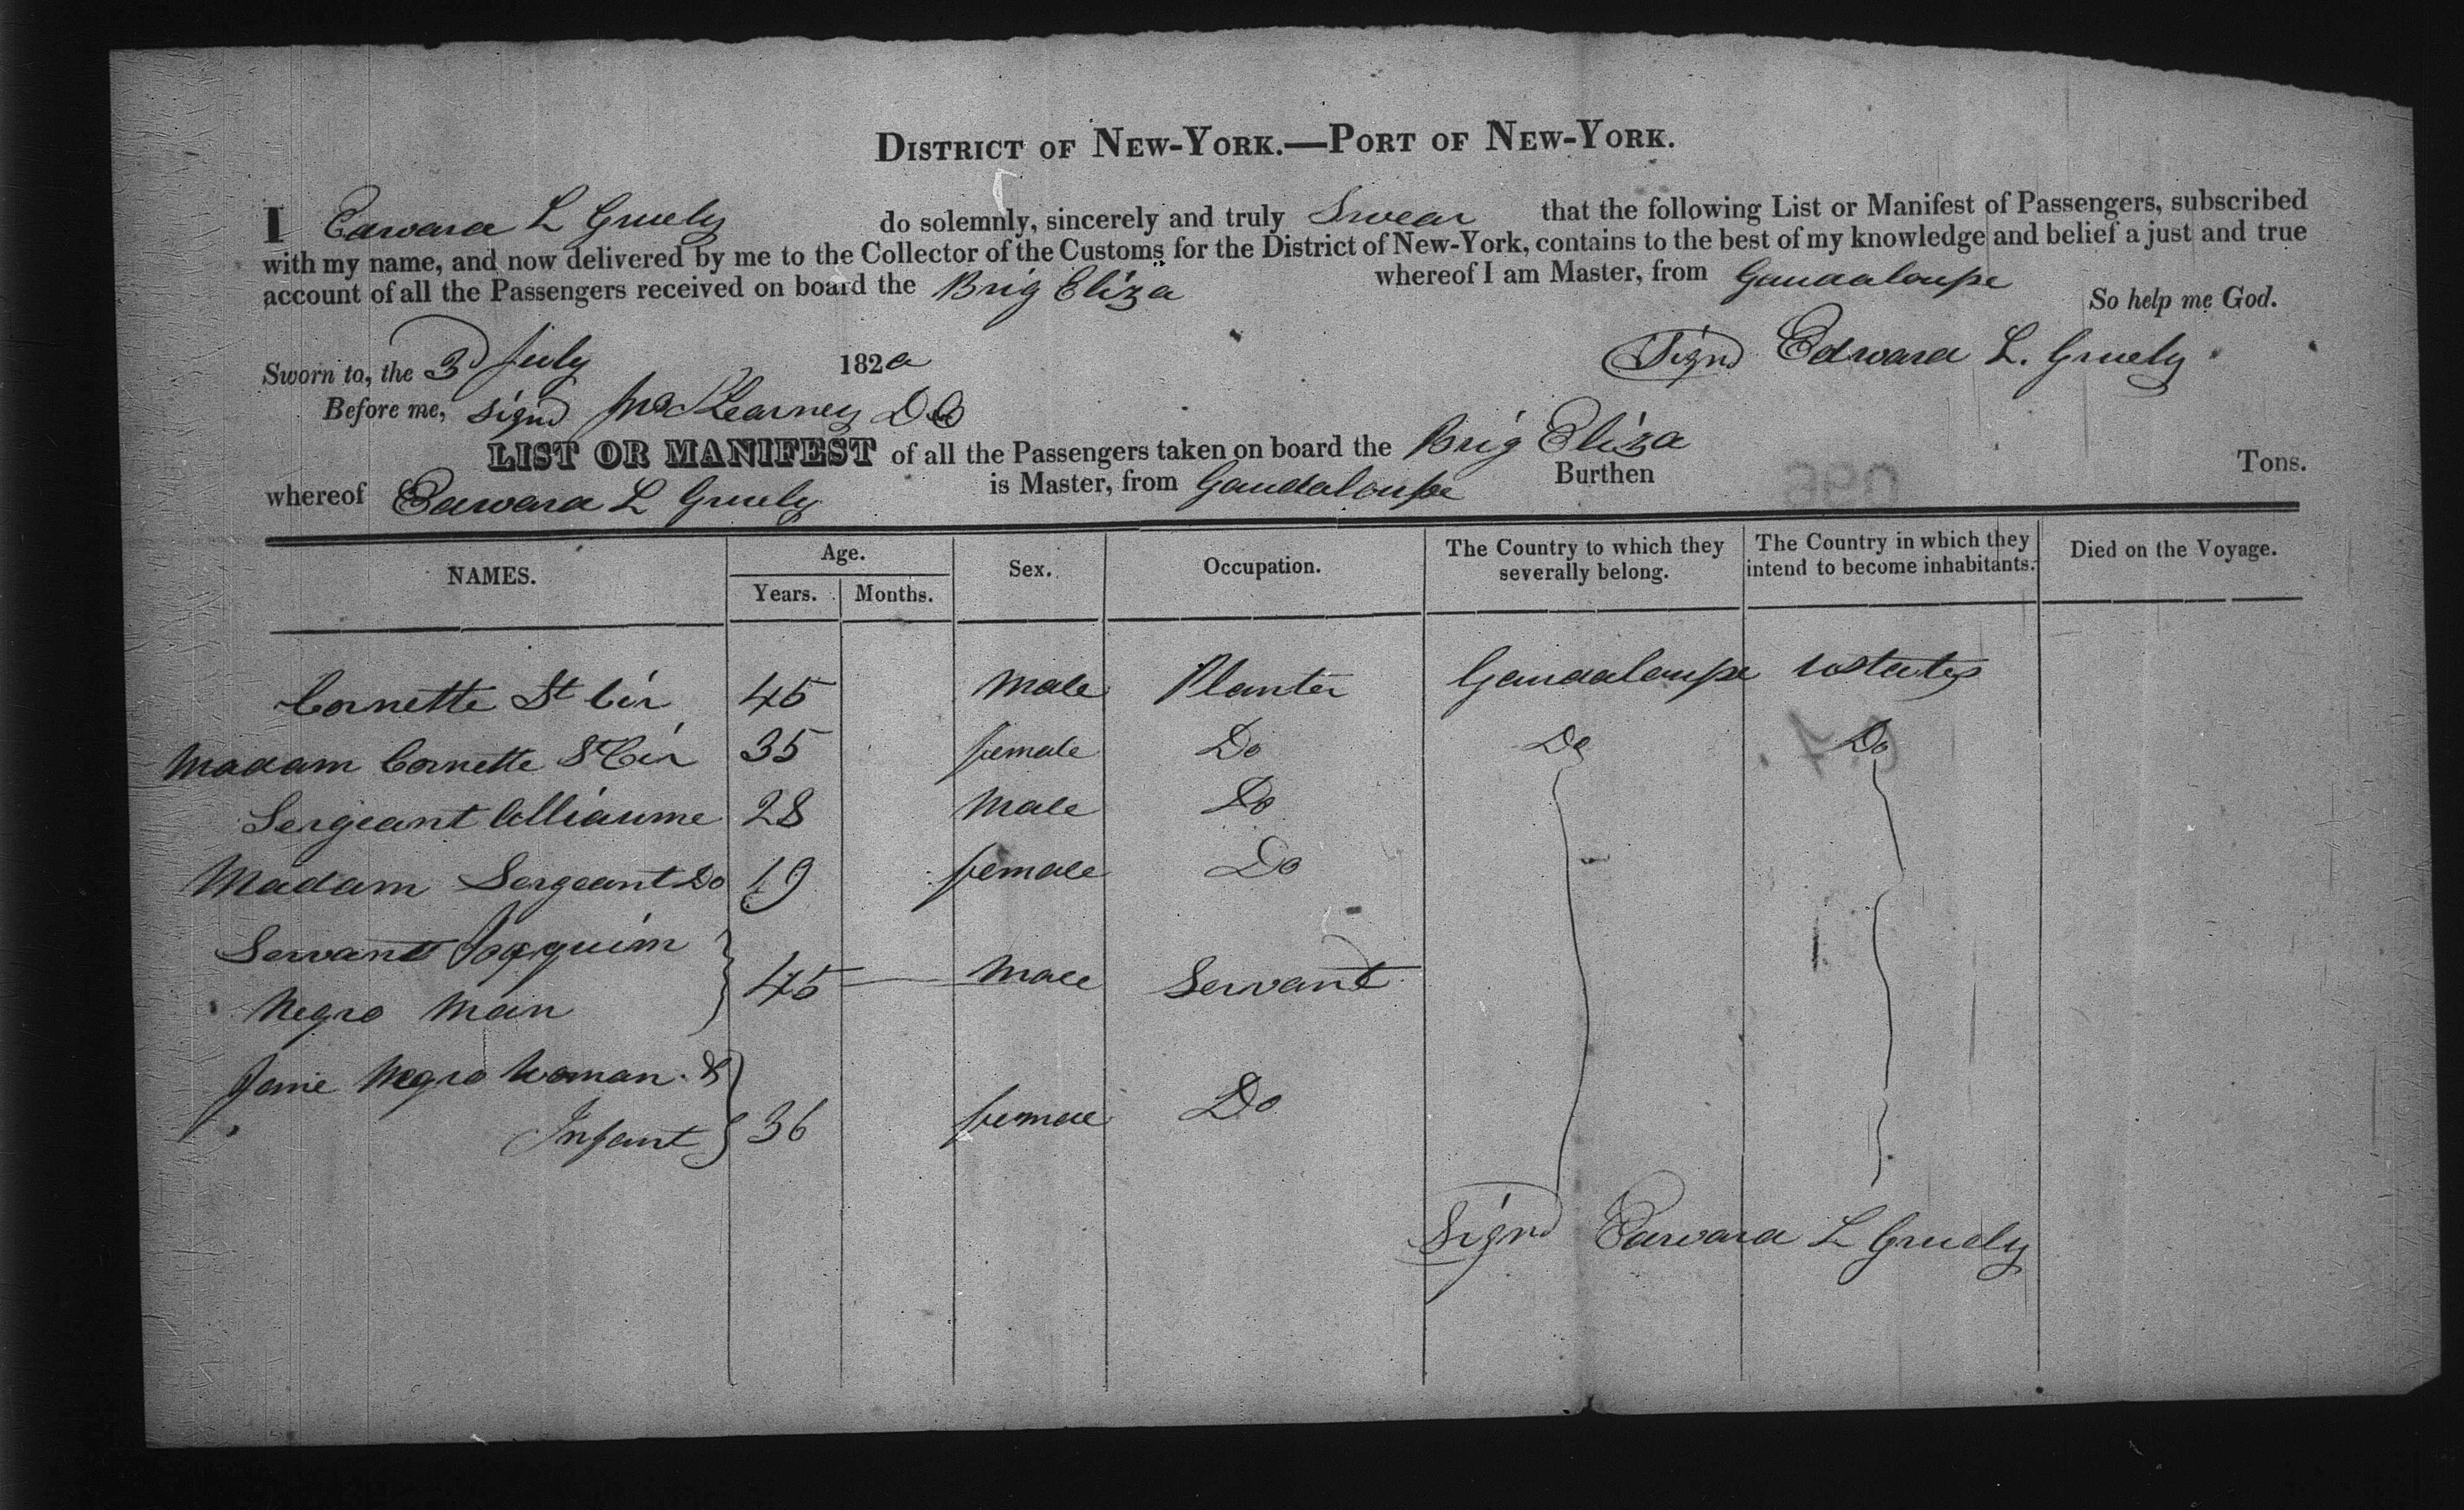 DISTRICT OF NEW-YORK.—PORT OF NEW-YORK.
I Edward L Gruely do solemnly, sincerely and truly Swear that the following List or Manifest of Passengers, subscribed
with my name, and now delivered by me to the Collector of the Customs for the District of New-York, contains to the best of my knowledge and belief a just and true
account of all the Passengers received on board the Brig Eliza whereof I am Master, from Gaudaloupe
So help me God.
Sworn to, the 3d July 182
Signd Edward L. Gruely
Before me, Signd Kearney
LIST OR MANIFEST of all the Passengers taken on board the Brig Eliza
whereof Edward L Gruely is Master, from Gaudaloupe Burthen Tons.
NAMES. Age. Sex. Occupation. The Country to which they severally belong. The Country in which they intend to become inhabitants. Died on the Voyage.
Years. Months.
Cornette St Cir 45 Male Planter Gaudaloupe UStates
Madam Cornette St Cir 35 female Do Do Do
Sergeant Alliaume 28 Male Do
Madam Sergeant Do 19 female Do
Servant Joaquim
Negro Man 45 Male Servant
Jane Negro Woman &
Infant 36 female Do
Signd Edward L Gruely